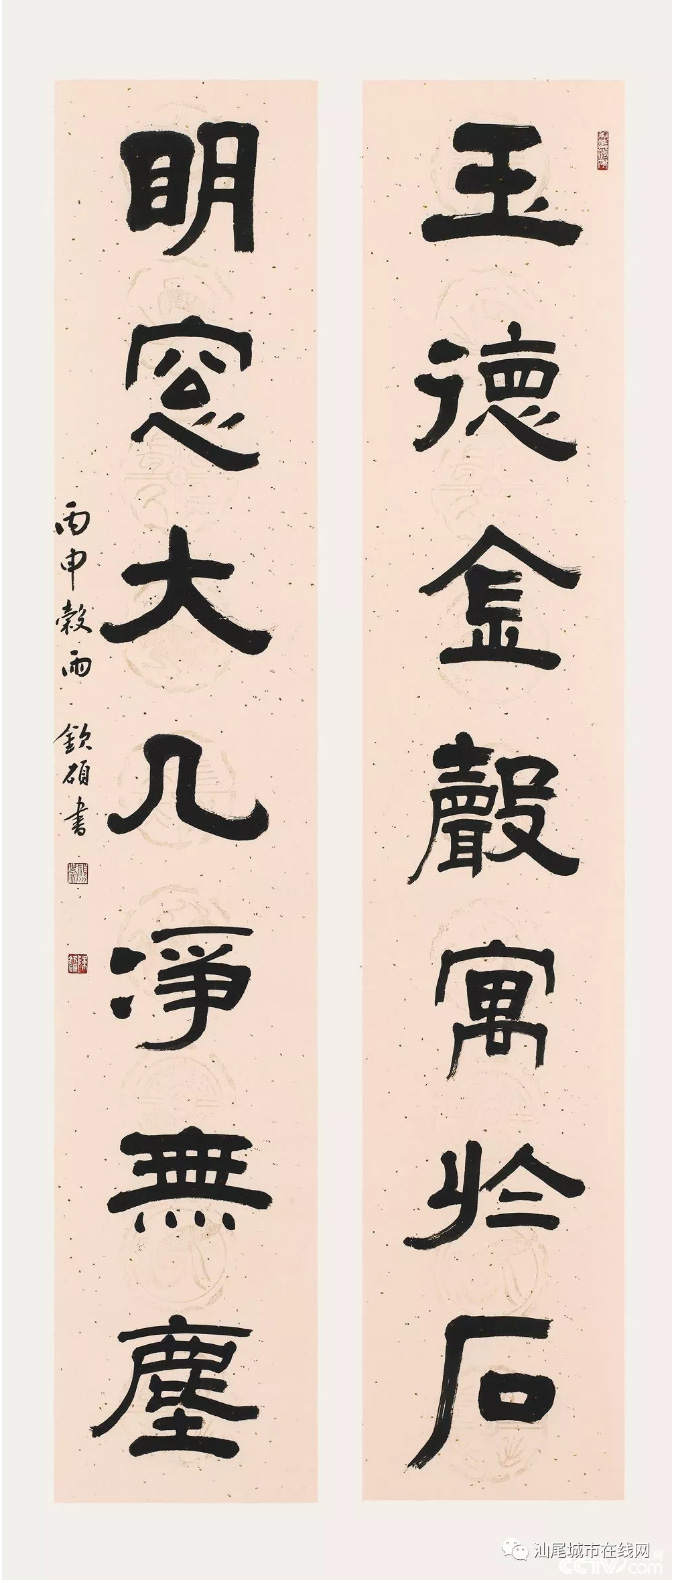 玉德金聲寓於石
明窓大几凈無塵
丙申穀雨 欽碩書
汕尾城市在线网
CCTV.com